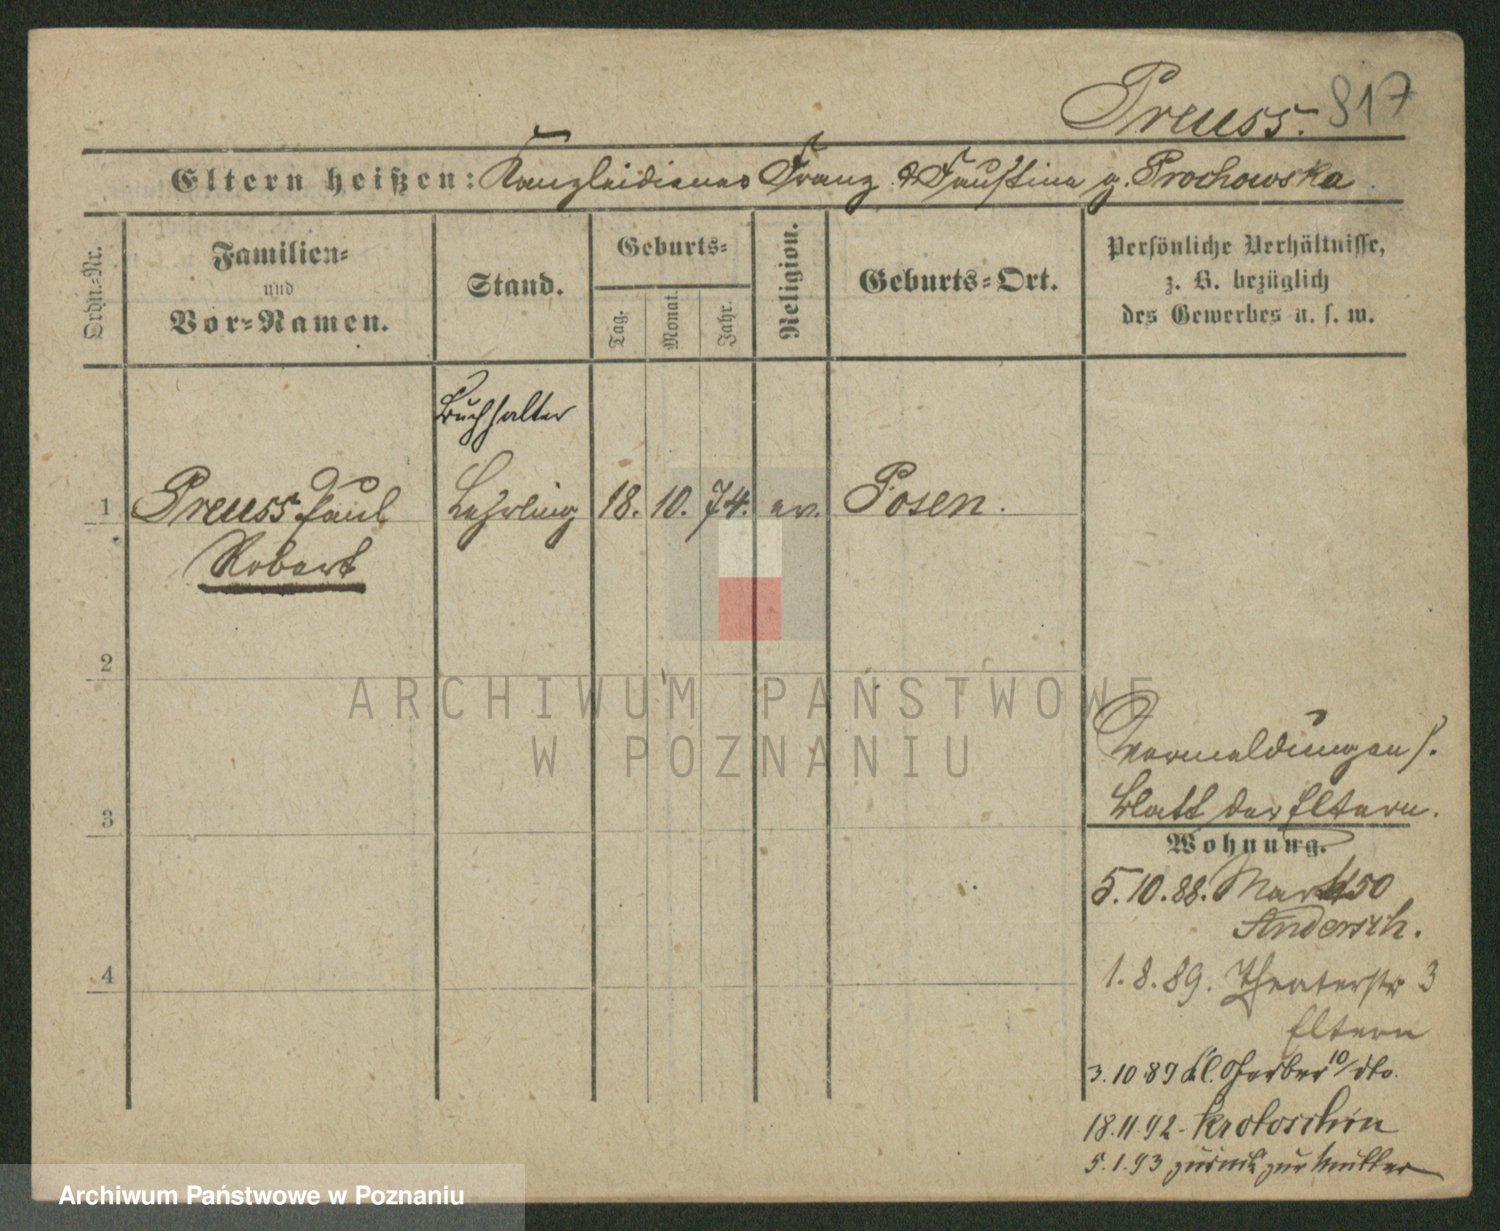 Preuss. 817
Eltern heißen: Kanzleidiener Franz & Faustine g. Prochowska.
Ordn.-Nr.
Familien-
und
Vor-Namen.
Stand.
Geburts-
Tag.
Monat.
Jahr.
Religion.
Geburts-Ort.
Persönliche Verhältnisse,
z. B. bezüglich
des Gewerbes u. s. w.
Buchhalter
1 Preuss Paul Lehrling 18. 10. 74. ev. Posen.
Robert
2
3
4
Vermeldungen s.
Blatt der Eltern.
Wohnung.
5.10.88. Markt 50
Andersch.
1.8.89. Theaterstr 3
Eltern
3.10.89 Kl. Gerber 10/dto.
18.11.92 - Krotoschin
5.1.93 zurück zur Mutter
ARCHIWUM PAŃSTWOWE
W POZNANIU
Archiwum Państwowe w Poznaniu